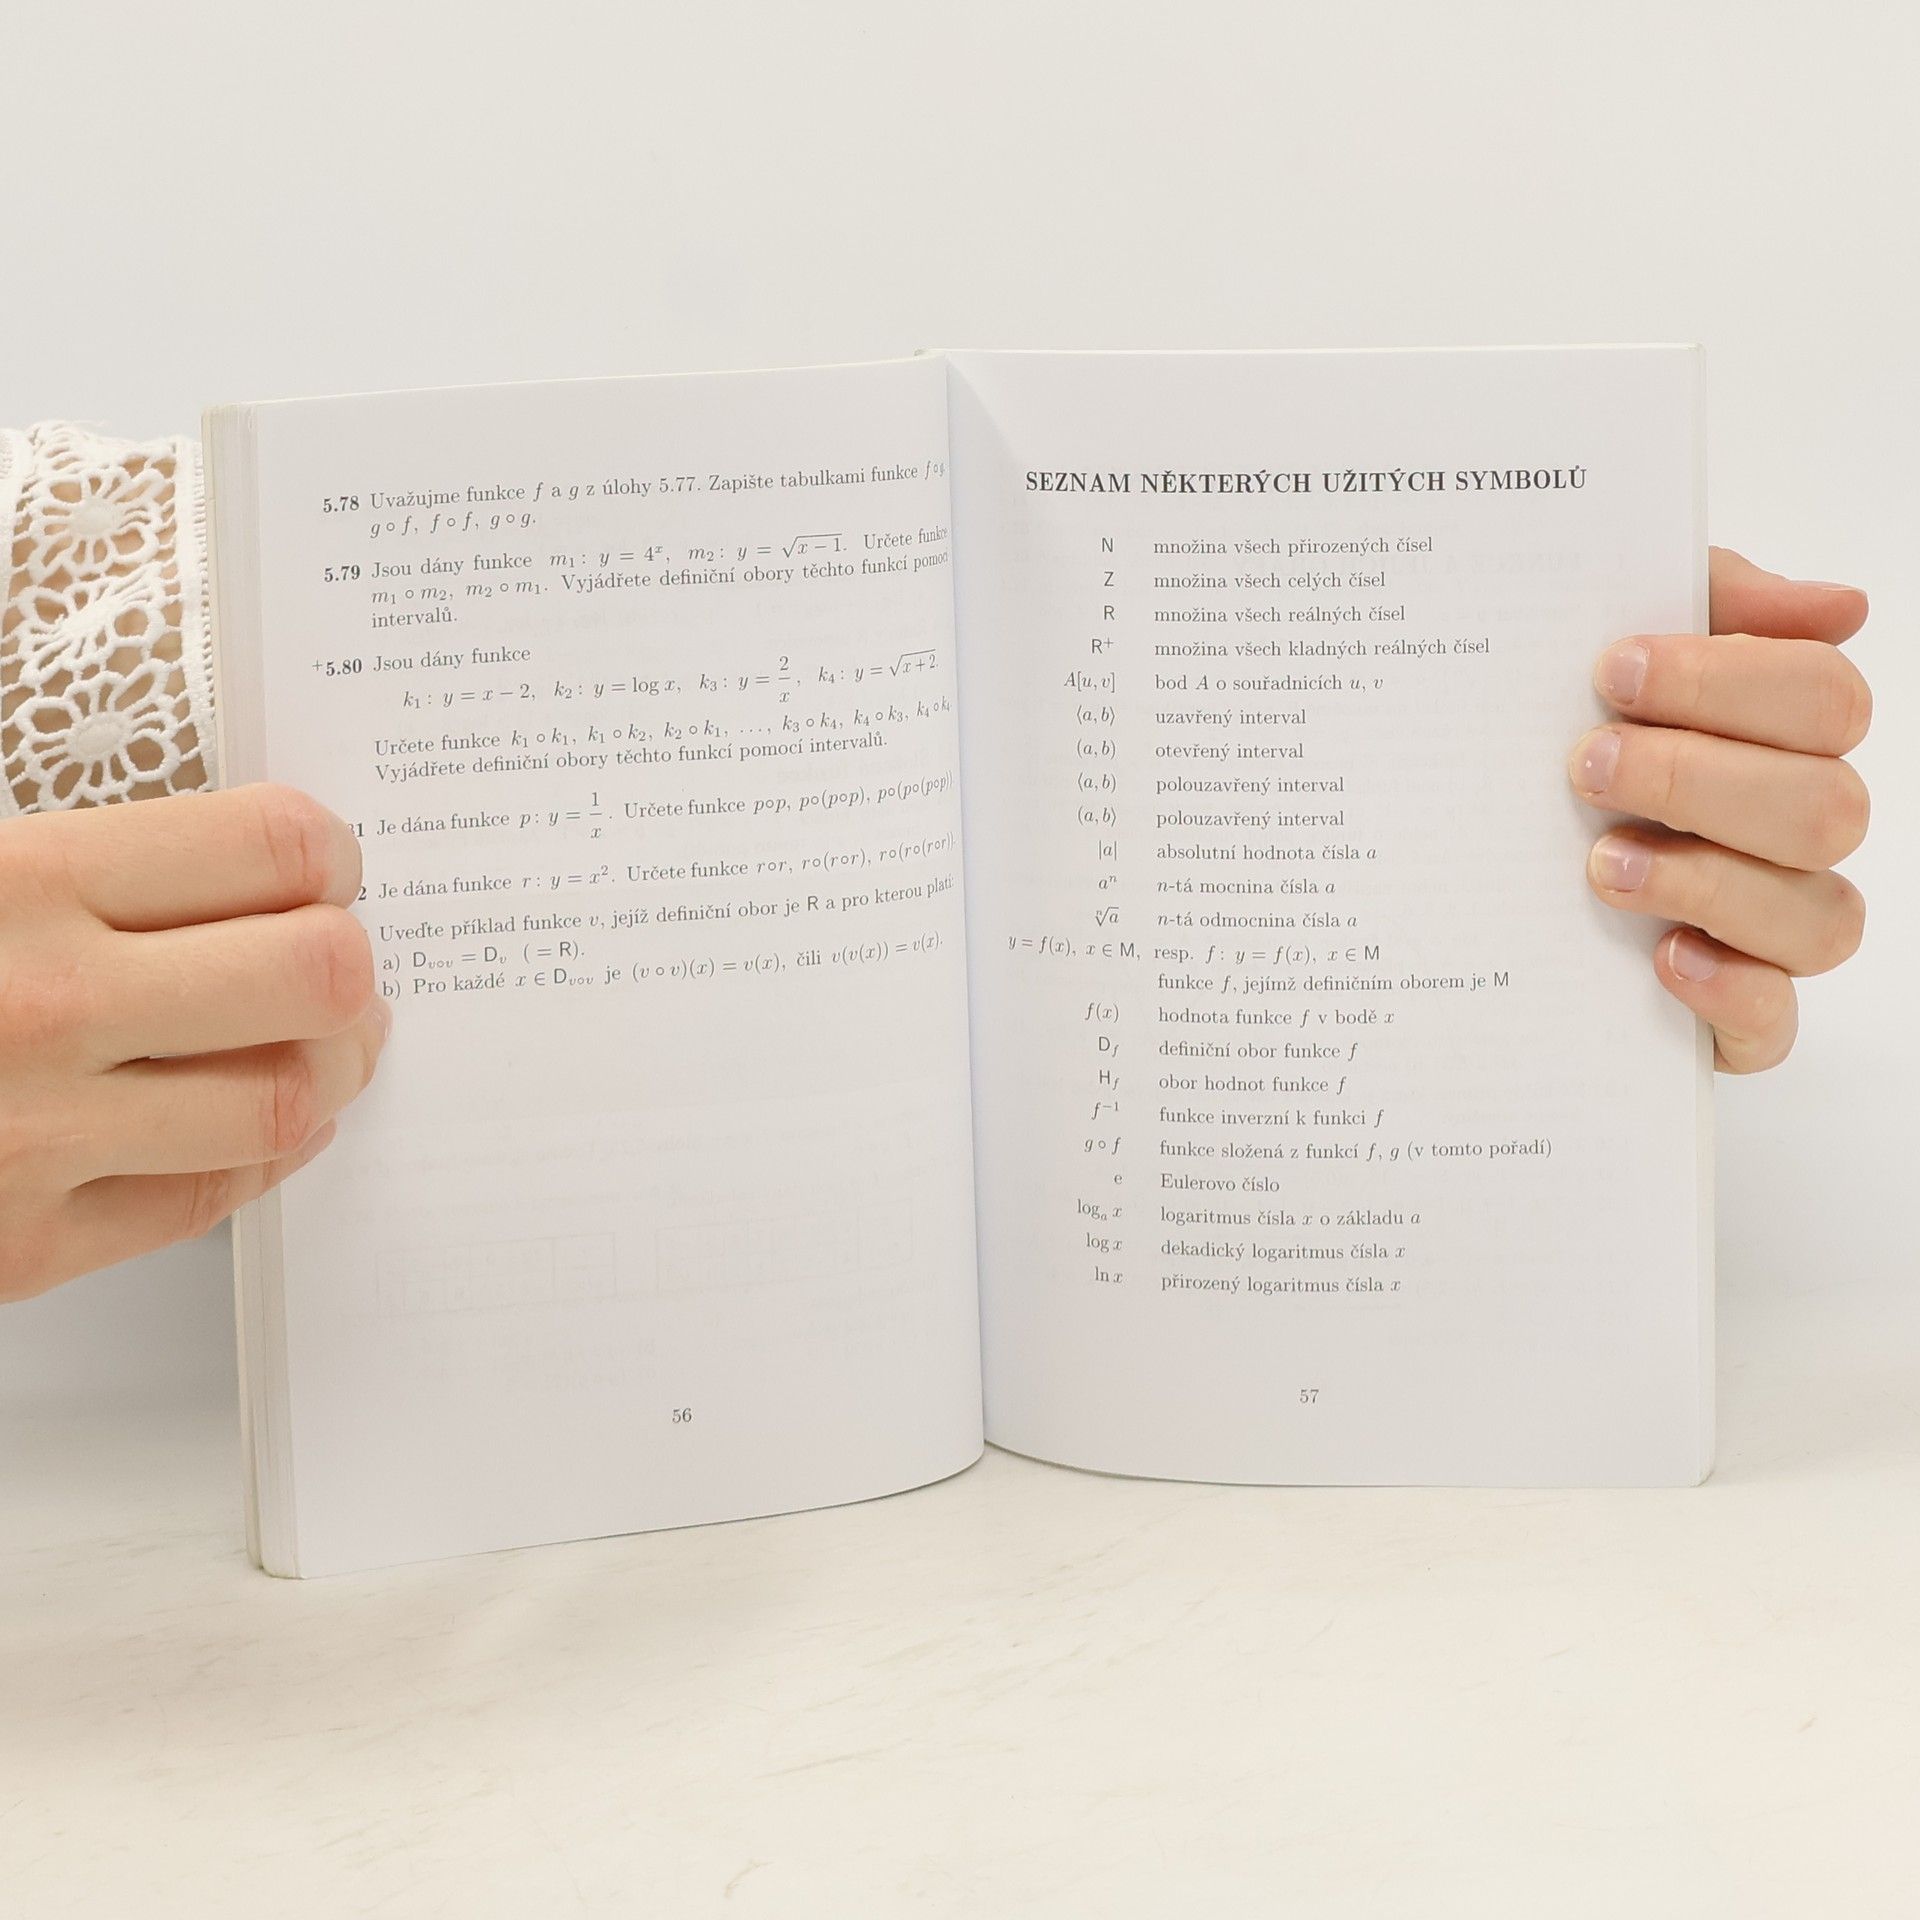 5.78 Uvažujme funkce f a g z úlohy 5.77. Zapište tabulkami funkce f∘g,
g∘f, f∘f, g∘g.
5.79 Jsou dány funkce m₁: y = 4ˣ, m₂: y = √(x − 1). Určete funkce
m₁ ∘ m₂, m₂ ∘ m₁. Vyjádřete definiční obory těchto funkcí pomocí
intervalů.
+5.80 Jsou dány funkce
k₁: y = x − 2, k₂: y = log x, k₃: y = 2/x, k₄: y = √(x + 2).
Určete funkce k₁ ∘ k₁, k₁ ∘ k₂, k₂ ∘ k₁, ..., k₃ ∘ k₄, k₄ ∘ k₃, k₄ ∘ k₄.
Vyjádřete definiční obory těchto funkcí pomocí intervalů.
1 Je dána funkce p: y = 1/x. Určete funkce p∘p, p∘(p∘p), p∘(p∘(p∘p)).
2 Je dána funkce r: y = x². Určete funkce r∘r, r∘(r∘r), r∘(r∘(r∘r)).
Uveďte příklad funkce v, jejíž definiční obor je R a pro kterou platí:
a) D_{v∘v} = D_v ( = R).
b) Pro každé x ∈ D_{v∘v} je (v ∘ v)(x) = v(x), čili v(v(x)) = v(x).
56
SEZNAM NĚKTERÝCH UŽITÝCH SYMBOLŮ
N množina všech přirozených čísel
Z množina všech celých čísel
R množina všech reálných čísel
R⁺ množina všech kladných reálných čísel
A[u, v] bod A o souřadnicích u, v
⟨a, b⟩ uzavřený interval
(a, b) otevřený interval
⟨a, b) polouzavřený interval
(a, b⟩ polouzavřený interval
|a| absolutní hodnota čísla a
aⁿ n-tá mocnina čísla a
ⁿ√a n-tá odmocnina čísla a
y = f(x), x ∈ M, resp. f: y = f(x), x ∈ M
funkce f, jejímž definičním oborem je M
f(x) hodnota funkce f v bodě x
D_f definiční obor funkce f
H_f obor hodnot funkce f
f⁻¹ funkce inverzní k funkci f
g ∘ f funkce složená z funkcí f, g (v tomto pořadí)
e Eulerovo číslo
logₐ x logaritmus čísla x o základu a
log x dekadický logaritmus čísla x
ln x přirozený logaritmus čísla x
57